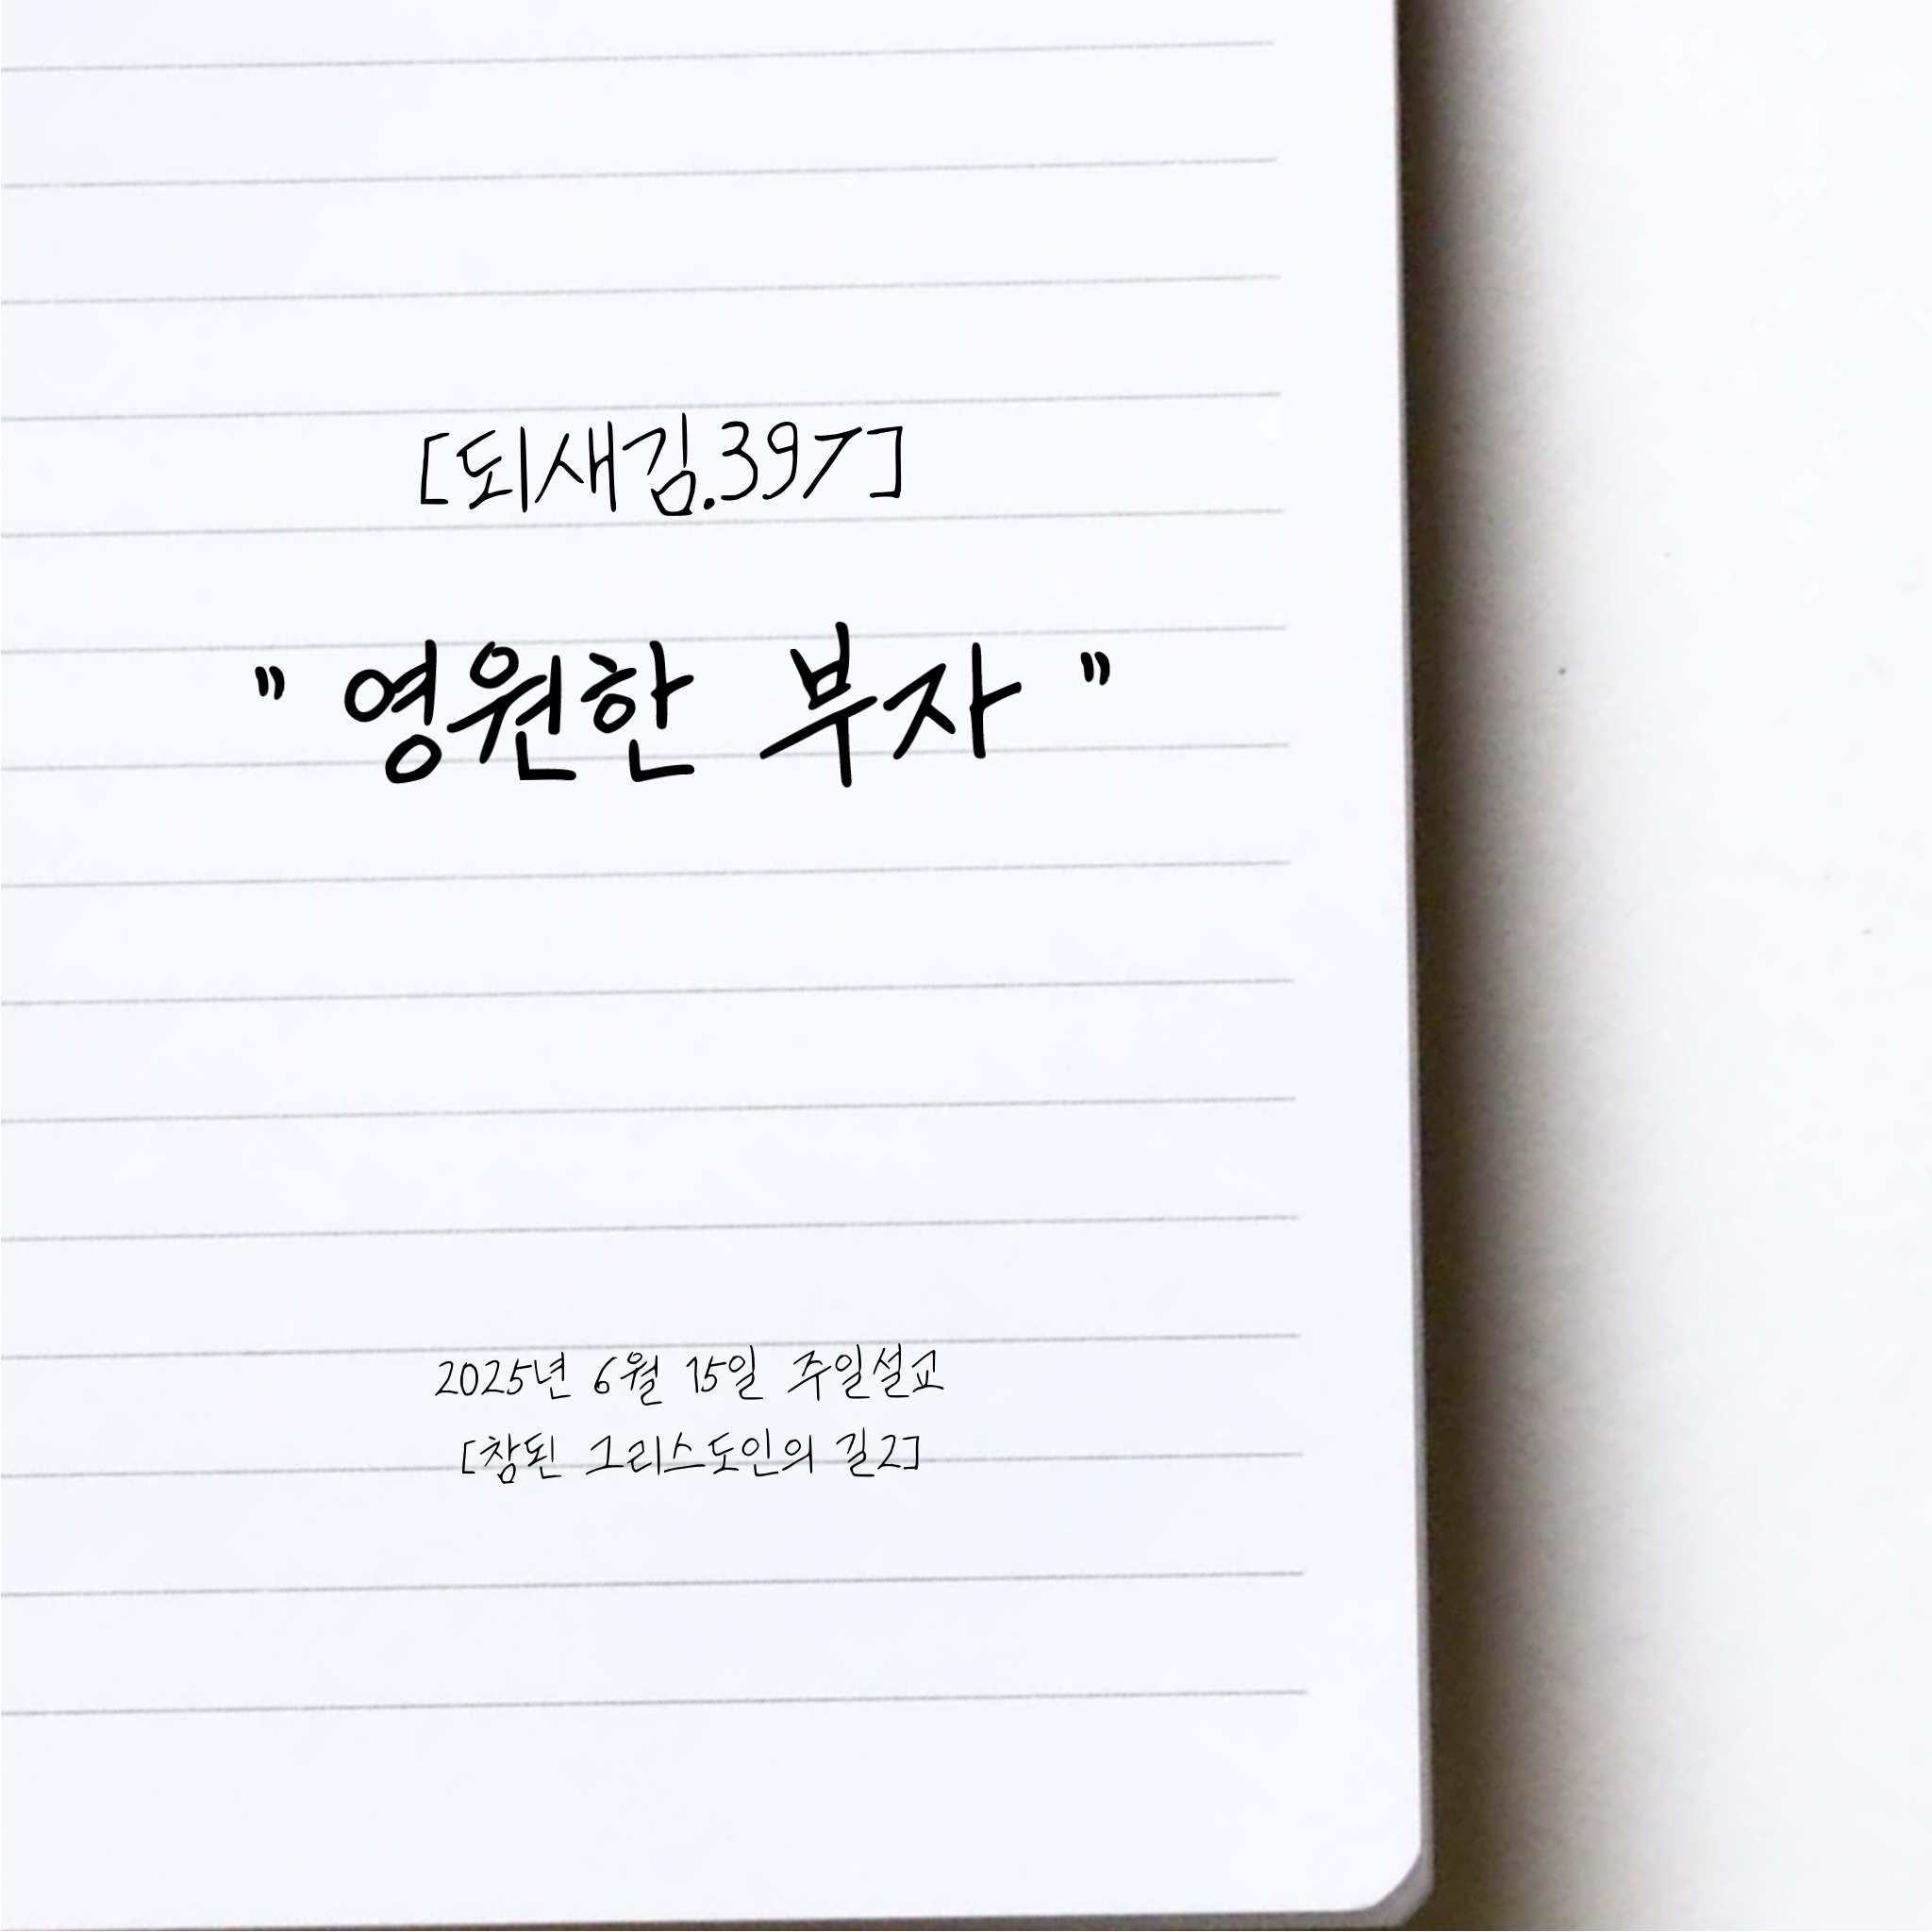 [되새김.397]
" 영원한 부자 "
2025년 6월 15일 주일설교
[참된 그리스도인의 길2]